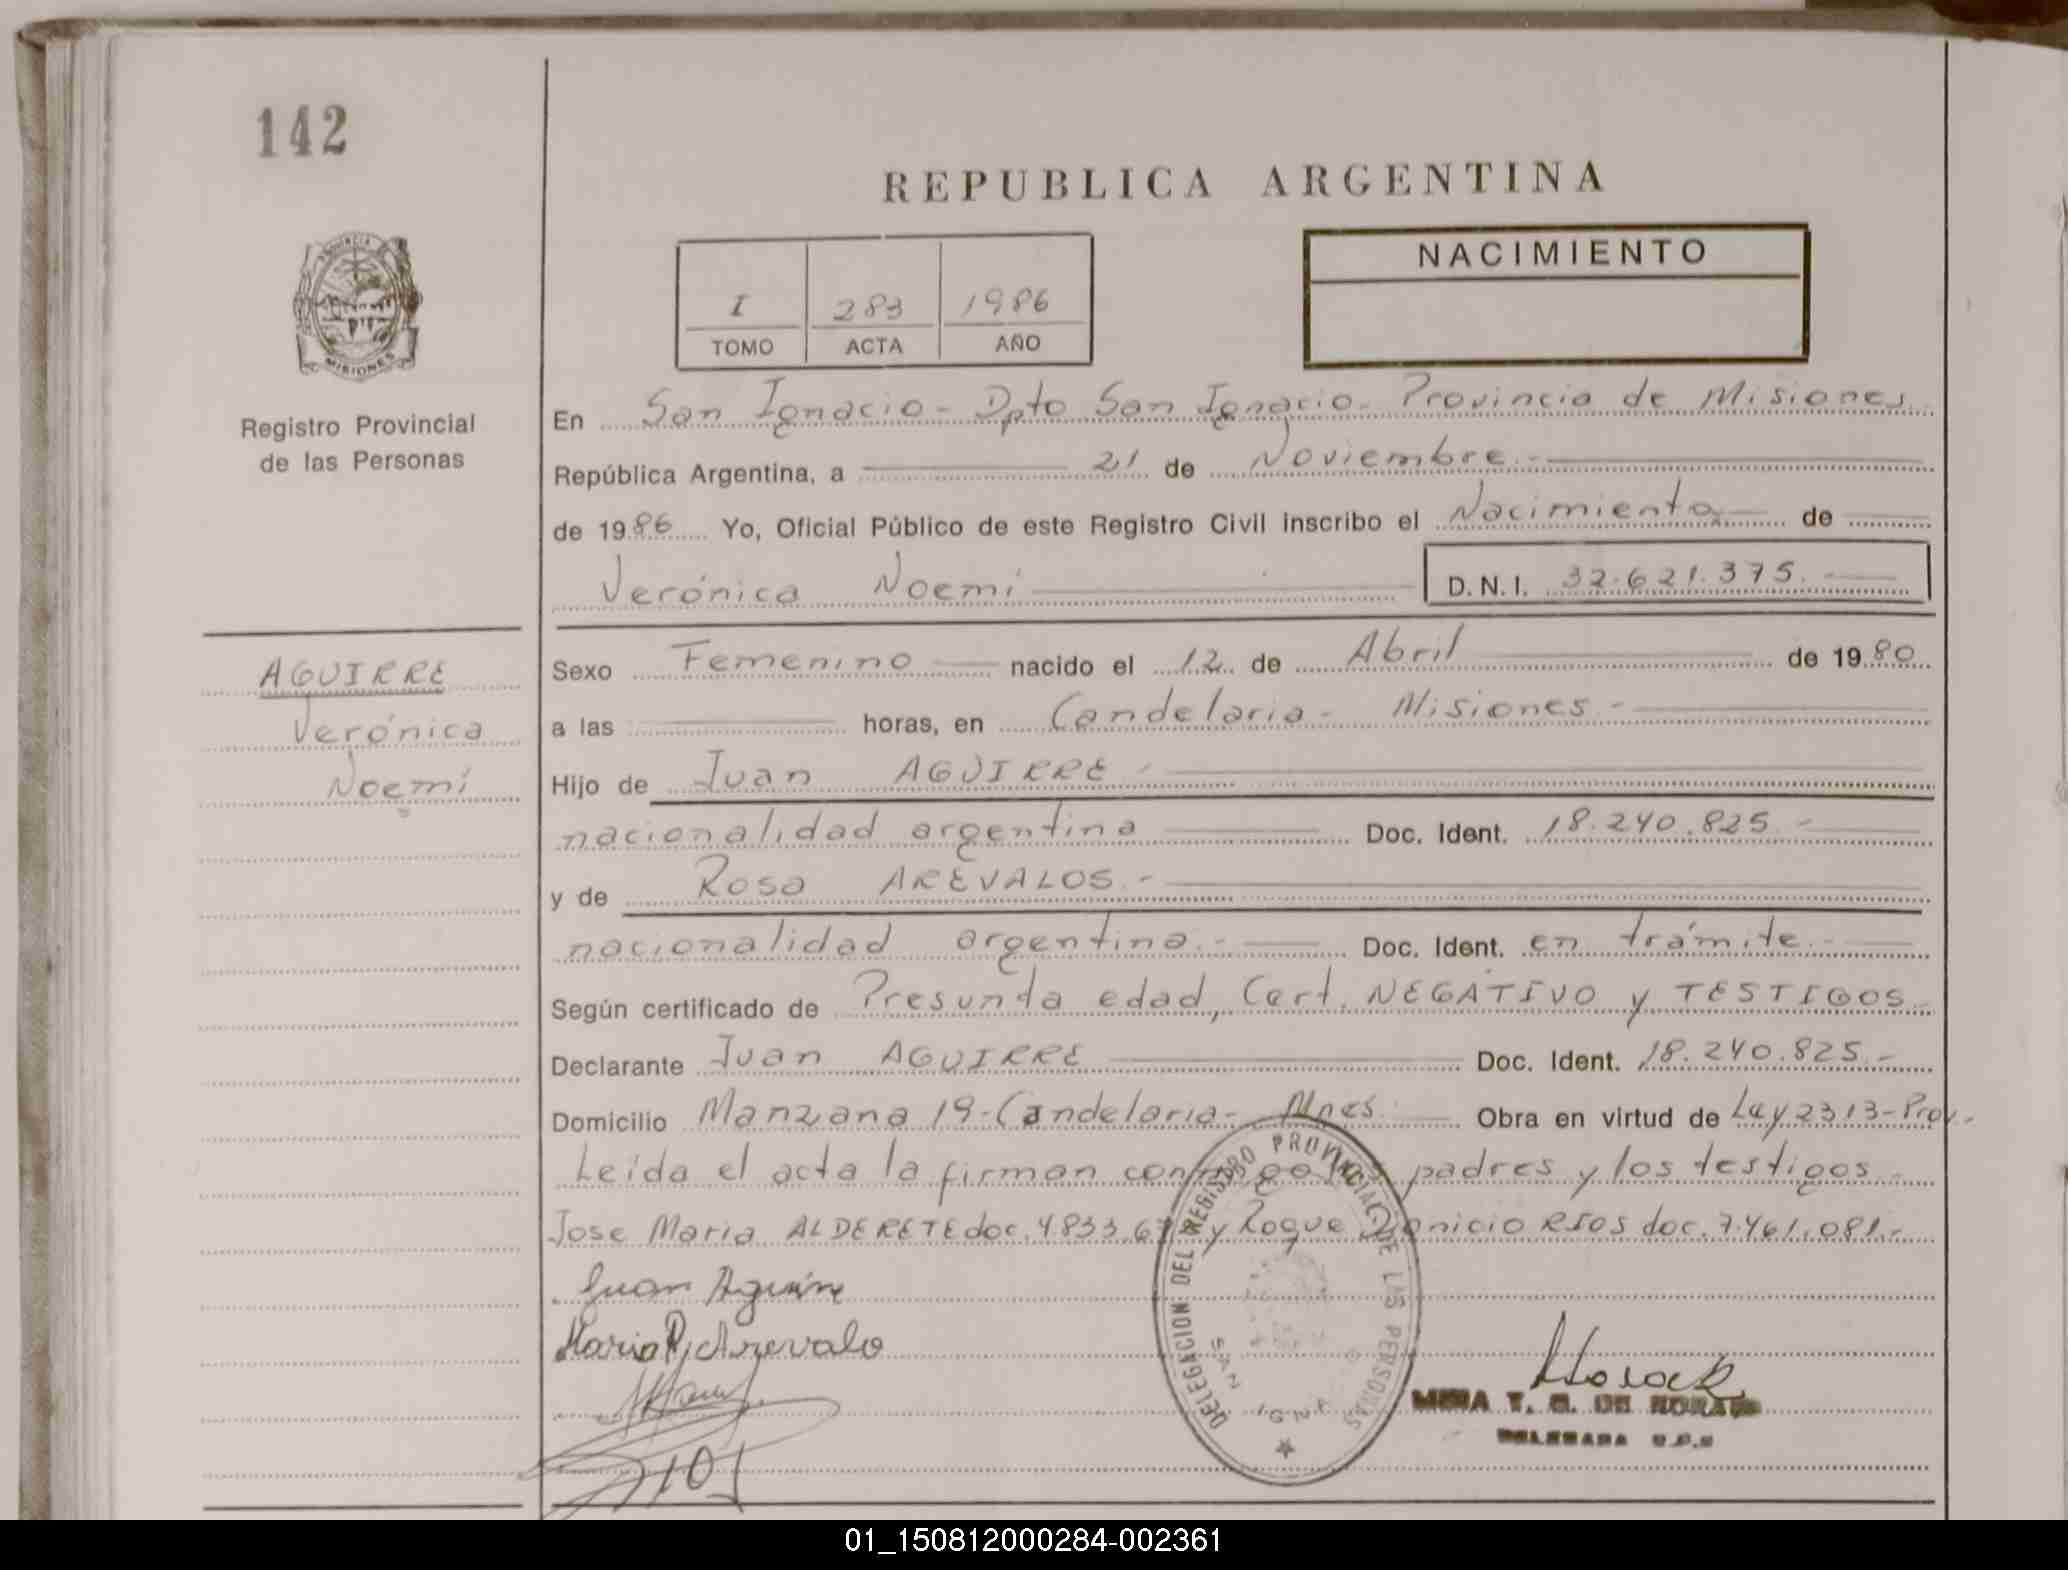 142
REPUBLICA ARGENTINA
PROVINCIA DE
MISIONES
Registro Provincial
de las Personas
I 283 1986
TOMO ACTA AÑO
NACIMIENTO
En San Ignacio - Dpto San Ignacio - Provincia de Misiones
República Argentina, a 21 de Noviembre.-
de 1986 Yo, Oficial Público de este Registro Civil inscribo el Nacimiento de
Verónica Noemí D.N.I. 32.621.375.-
AGUIRRE
Verónica
Noemí
Sexo Femenino nacido el 12 de Abril de 1980
a las horas, en Candelaria - Misiones -
Hijo de Juan AGUIRRE -
nacionalidad argentina Doc. Ident. 18.240.825 -
y de Rosa AREVALOS.-
nacionalidad argentina.- Doc. Ident. en trámite.-
Según certificado de Presunta edad, Cert. NEGATIVO y TESTIGOS
Declarante Juan AGUIRRE Doc. Ident. 18.240.825.-
Domicilio Manzana 19 - Candelaria - Mnes. Obra en virtud de Ley 2313 - Prov.-
Leida el acta la firman conmigo los padres y los testigos
Jose Maria ALDERETE doc. 4833.6 y Roque Dionicio RIOS doc. 7.461.081.-
Juan Aguirre
Maria R, Arevalo
DELEGACION DEL REGISTRO PROVINCIAL DE LAS PERSONAS
SAN IGNA
DE
01_150812000284-002361